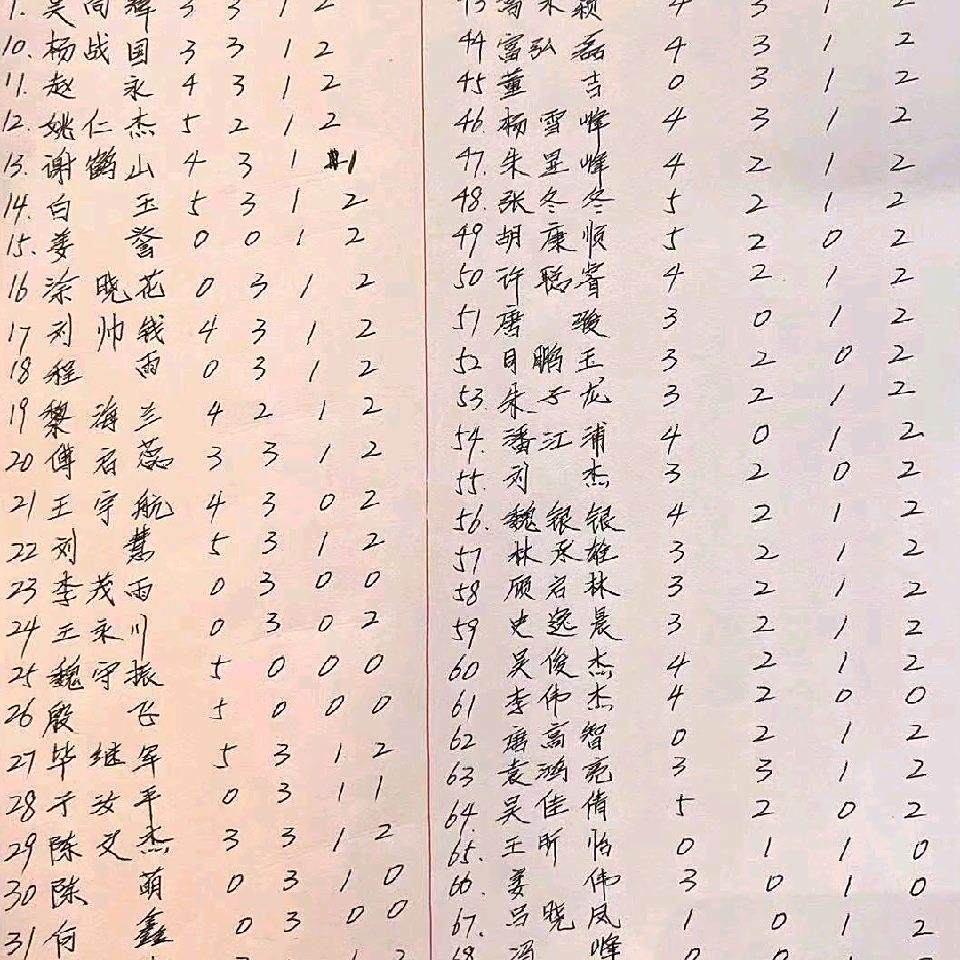 杨战国 3 3 1 2
11. 赵永 4 3 1 2
12. 姚仁杰 5 2 1 2
13. 谢鹤山 4 3 1 1
14. 白玉 5 3 1 2
15. 姜 0 0 1 2
16 涂晓花 0 3 1 2
17 刘帅钱 4 3 1 2
18 程雨 0 3 1 2
19 黎海兰 4 2 1 2
20 傅君蕊 3 3 1 2
21 王宇航 4 3 0 2
22 刘慧 5 3 1 2
23 李茂雨 0 3 0 0
24 王永川 0 3 0 2
25 魏守振 5 0 0 0
26 殷飞 5 0 0 0
27 毕继军 5 3 1 2
28 汝平 0 3 1 1
29 陈文杰 3 3 1 2
30 陈萌 0 3 1 0
31 向鑫 0 3 0 0
44 富弘磊 4 3 1 2
45 董吉 0 3 1 2
46 杨雪峰 4 3 1 2
47. 朱昱峰 4 2 1 2
48. 张冬冬 5 2 1 2
49 胡康顺 5 2 0 2
50 许聪睿 4 2 1 2
51 唐骏 3 0 1 2
52 鹏玉 3 2 0 2
53 朱子龙 3 2 1 2
54. 潘江浦 4 0 1 2
55. 刘杰 3 2 0 2
56. 魏银银 4 2 1 2
57 林丞雄 3 2 1 2
58 顾君林 3 2 1 2
59 史逸晨 3 2 1 2
60 吴俊杰 4 2 1 2
61 李伟杰 4 2 0 0
62 唐高智 0 2 1 2
63 袁鸿亮 3 3 1 2
64. 吴佳倩 5 2 0 2
65. 王昕怡 0 1 1 0
66. 姜伟 3 0 1 0
67. 吕晓凤 1 0 1 2